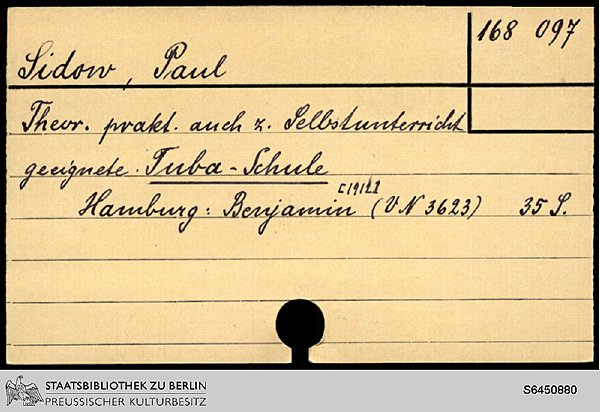 168 097
Sidow, Paul
Theor. prakt. auch z. Selbstunterricht
geeignete Tuba-Schule
Hamburg: Benjamin (VN 3623) 35 S.
STAATSBIBLIOTHEK ZU BERLIN
PREUSSISCHER KULTURBESITZ
S6450880